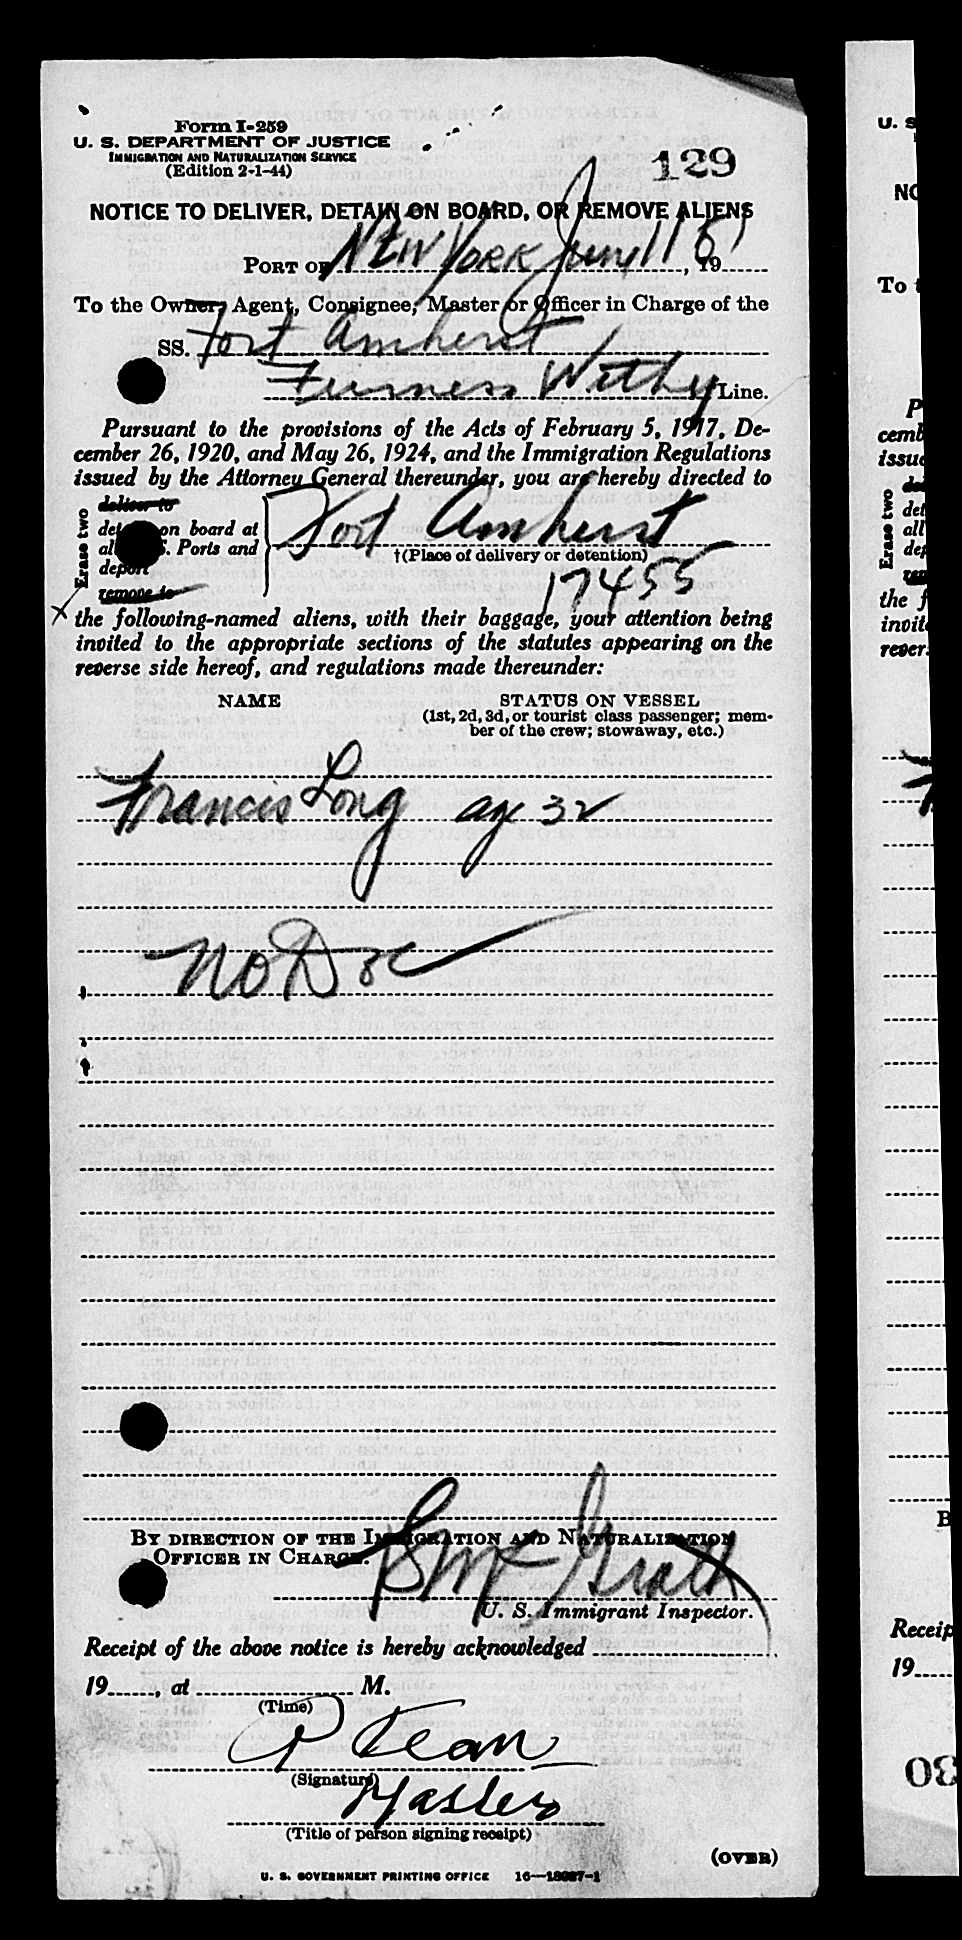 Form I-259
U. S. DEPARTMENT OF JUSTICE
IMMIGRATION AND NATURALIZATION SERVICE
(Edition 2-1-44)
129
NOTICE TO DELIVER, DETAIN ON BOARD, OR REMOVE ALIENS
PORT OF NEW YORK June 11 51, 19
To the Owner, Agent, Consignee, Master or Officer in Charge of the
SS. Fort Amherst
Furness Withy Line.
Pursuant to the provisions of the Acts of February 5, 1917, De-
cember 26, 1920, and May 26, 1924, and the Immigration Regulations
issued by the Attorney General thereunder, you are hereby directed to
Erase two
deliver to
detain on board at
all U. S. Ports and
deport
remove to
Fort Amherst
†(Place of delivery or detention)
17455
X the following-named aliens, with their baggage, your attention being
invited to the appropriate sections of the statutes appearing on the
reverse side hereof, and regulations made thereunder:
NAME STATUS ON VESSEL
(1st, 2d, 3d, or tourist class passenger; mem-
ber of the crew; stowaway, etc.)
Francis Long age 32
No Doc
BY DIRECTION OF THE IMMIGRATION AND NATURALIZATION
OFFICER IN CHARGE.
McGrath
U. S. Immigrant Inspector.
Receipt of the above notice is hereby acknowledged
19, at M.
(Time)
Kean
(Signature)
Master
(Title of person signing receipt)
(OVER)
U. S. GOVERNMENT PRINTING OFFICE
U. S
NO
To t
P
cemb
issue
Erase two
det
all
dep
the f
invite
rever
B
Receip
19
30